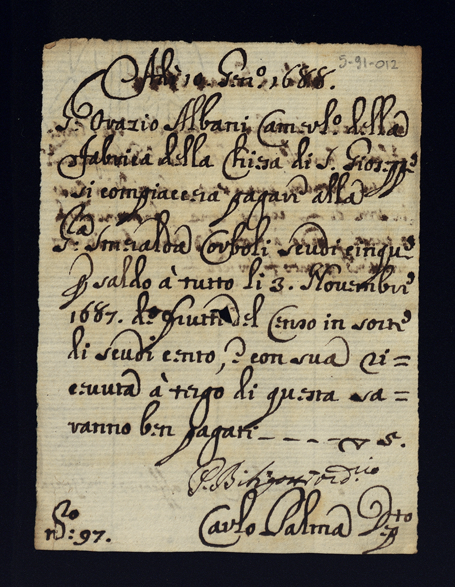 5-91-012
Adì 19 Gen.º 1688.
S.r Orazio Albani Camerl.º della
fabrica della Chiesa di S. Gioseppe
si compiacerà pagare alla
S.ra Smeralda Corboli scudi cinque
p saldo à tutto li 3. Novembre
1687. de frutti del Censo in sorte
di scudi cento, e con sua ri=
cevuta à tergo di questa sa=
ranno ben pagati ▽ 5.
Carlo Palma
n.º: 97.